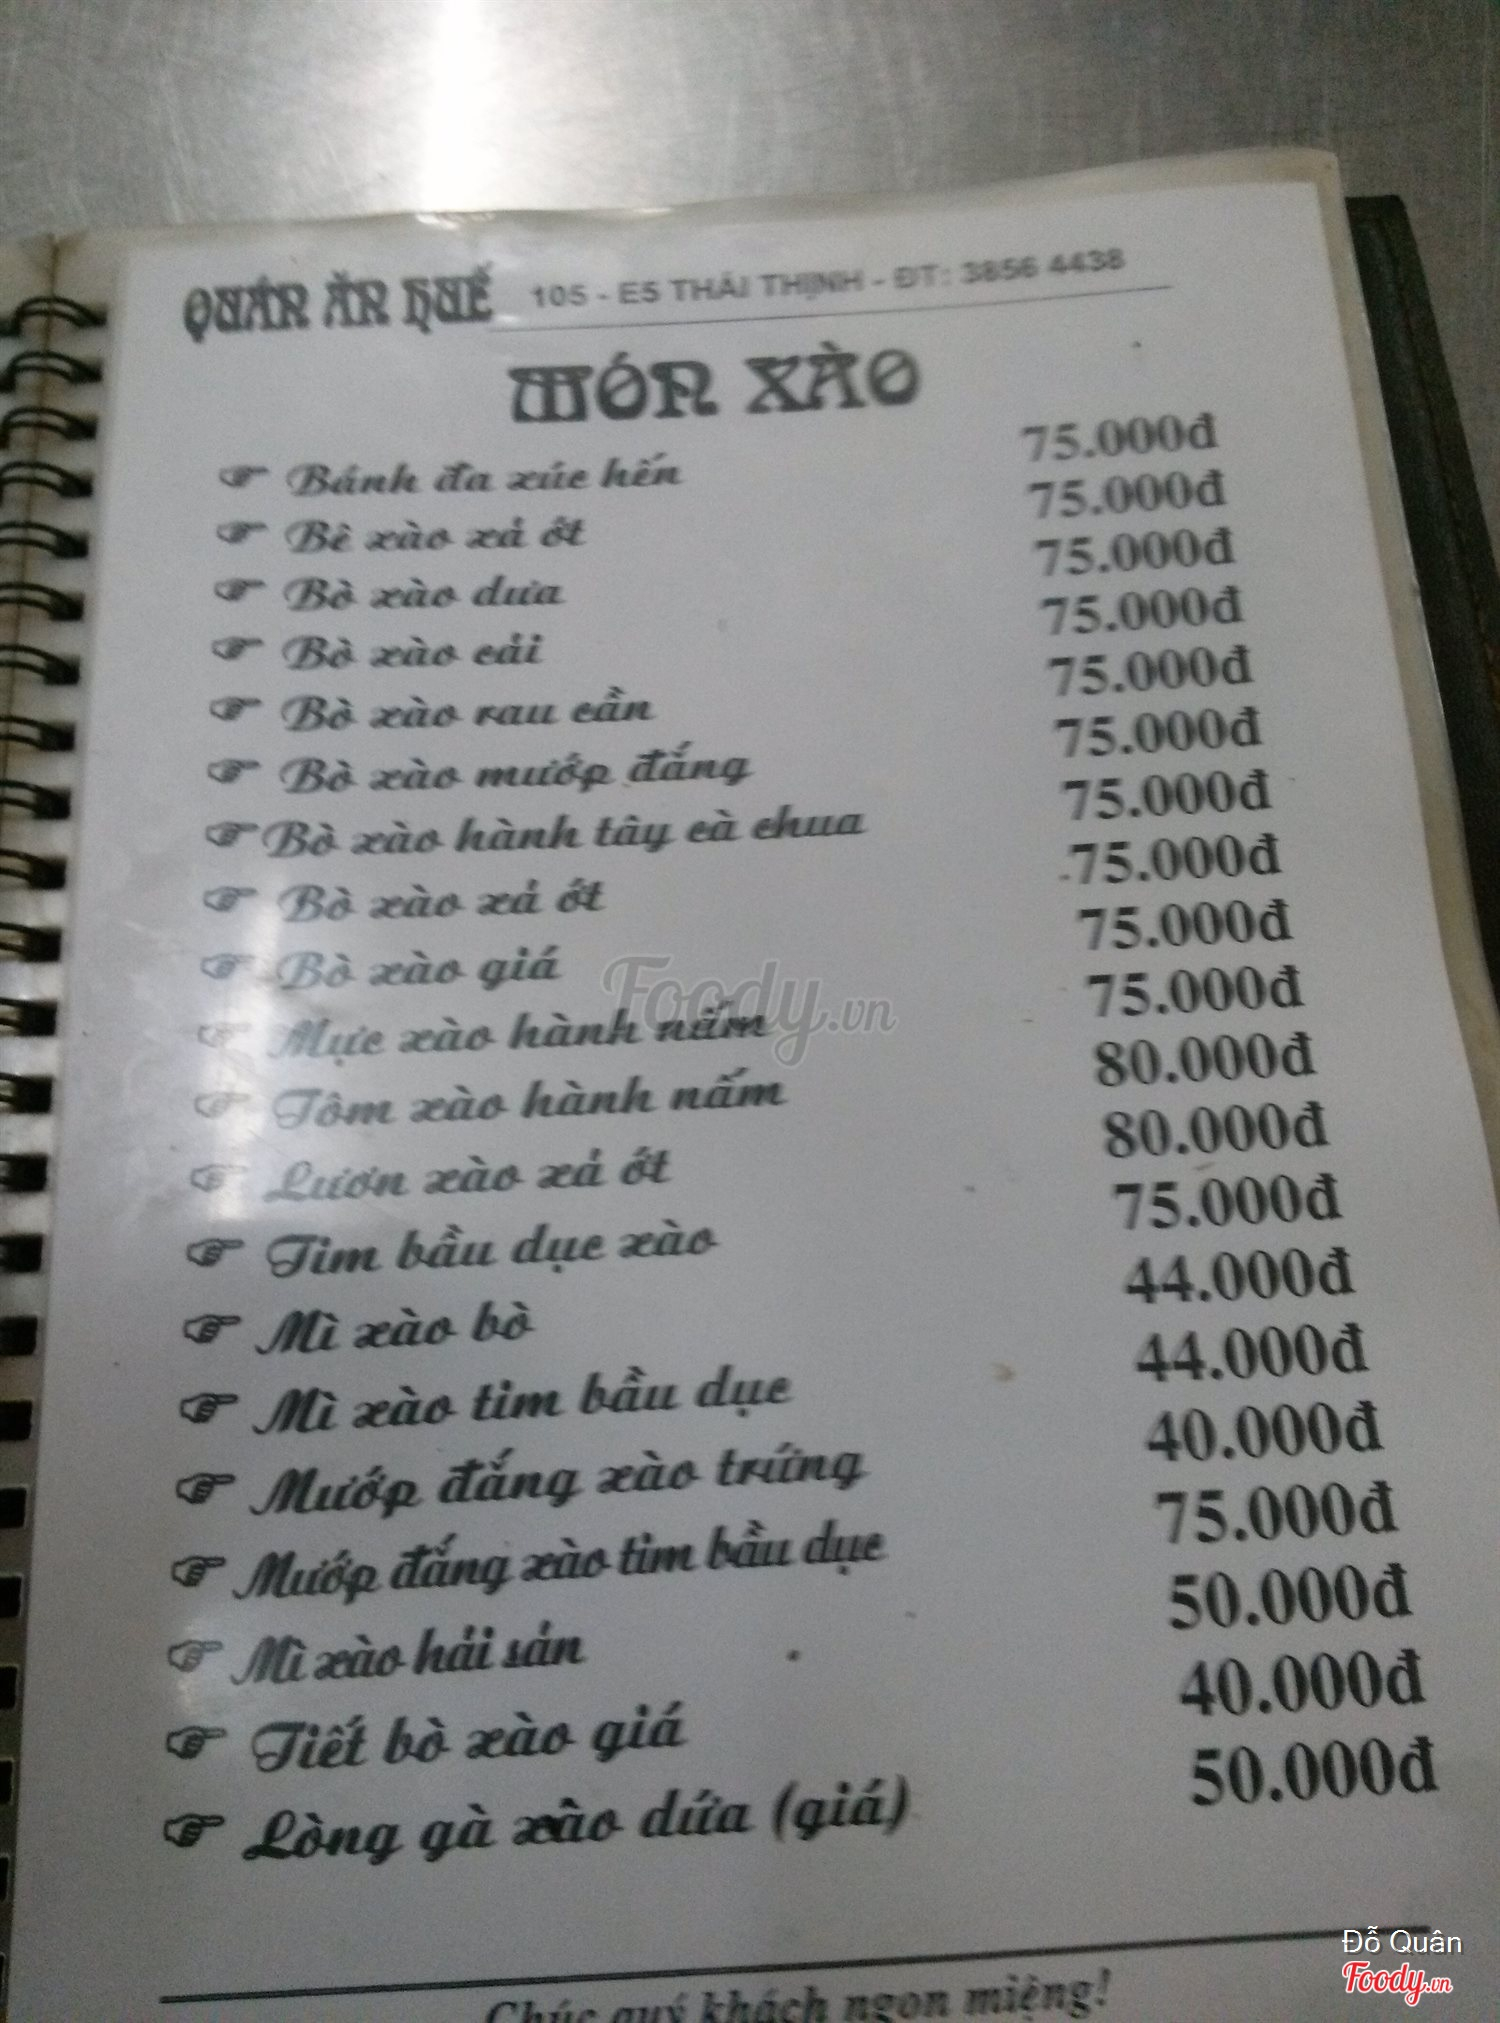 QUÁN ĂN HUẾ 105 - E5 THÁI THỊNH - ĐT: 3856 4438
MÓN XÀO
Bánh đa xúc hến 75.000đ
Bê xào xả ớt 75.000đ
Bò xào dưa 75.000đ
Bò xào cải 75.000đ
Bò xào rau cần 75.000đ
Bò xào mướp đắng 75.000đ
Bò xào hành tây cà chua 75.000đ
Bò xào xả ớt 75.000đ
Bò xào giá 75.000đ
Mực xào hành nấm 75.000đ
Tôm xào hành nấm 80.000đ
Lươn xào xả ớt 80.000đ
Tim bầu dục xào 75.000đ
Mì xào bò 44.000đ
Mì xào tim bầu dục 44.000đ
Mướp đắng xào trứng 40.000đ
Mướp đắng xào tim bầu dục 75.000đ
Mì xào hải sản 50.000đ
Tiết bò xào giá 40.000đ
Lòng gà xào dứa (giá) 50.000đ
Chúc quý khách ngon miệng!
Foody.vn
Đỗ Quân
Foody.vn